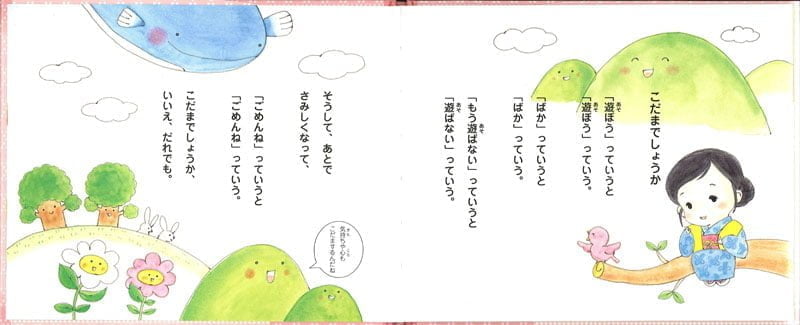 こだまでしょうか
「遊ぼう」っていうと
「遊ぼう」っていう。
「ばか」っていうと
「ばか」っていう。
「もう遊ばない」っていうと
「遊ばない」っていう。
そうして、あとで
さみしくなって、
「ごめんね」っていうと
「ごめんね」っていう。
こだまでしょうか、
いいえ、だれでも。
気持ちや心も
こだまするんだね